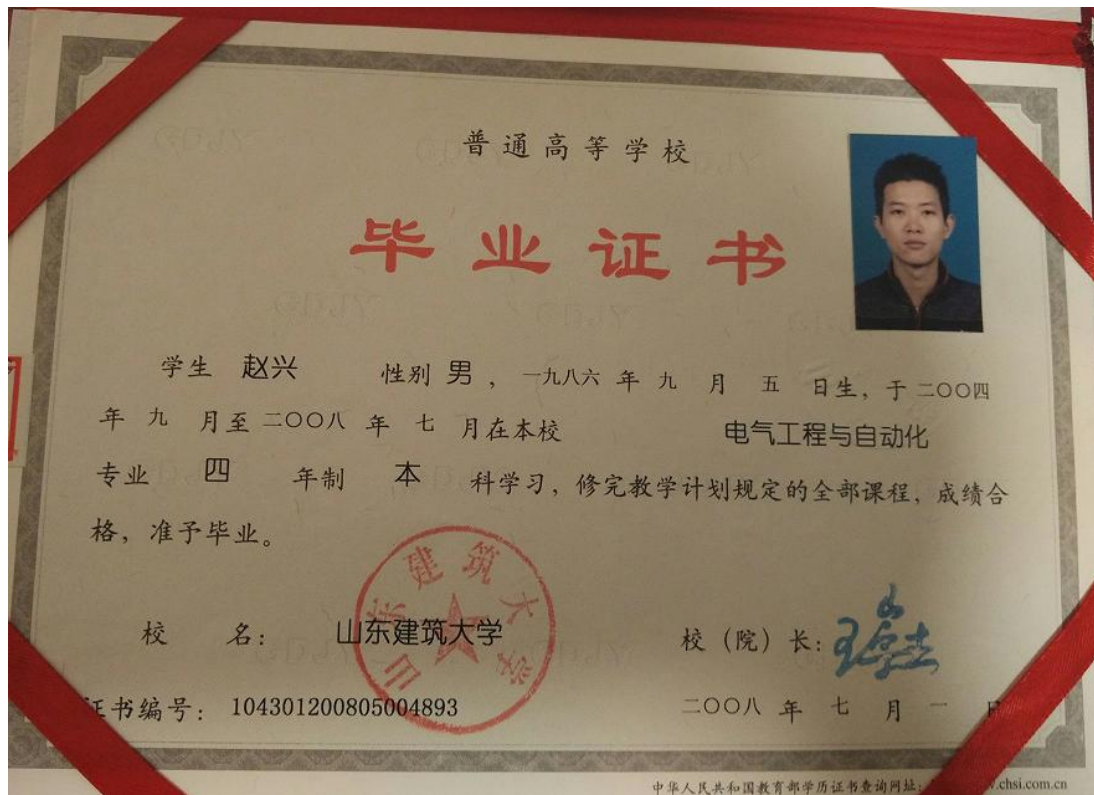 普通高等学校
毕业证书
学生 赵兴 性别 男 ， 一九八六 年 九 月 五 日生，于 二〇〇四
年 九 月至 二〇〇八 年 七 月在本校 电气工程与自动化
专业 四 年制 本 科学习，修完教学计划规定的全部课程，成绩合
格，准予毕业。
山东建筑大学
校 名： 山东建筑大学 校（院）长：
证书编号： 104301200805004893 二〇〇八 年 七 月 一 日
中华人民共和国教育部学历证书查询网址： .chsi.com.cn